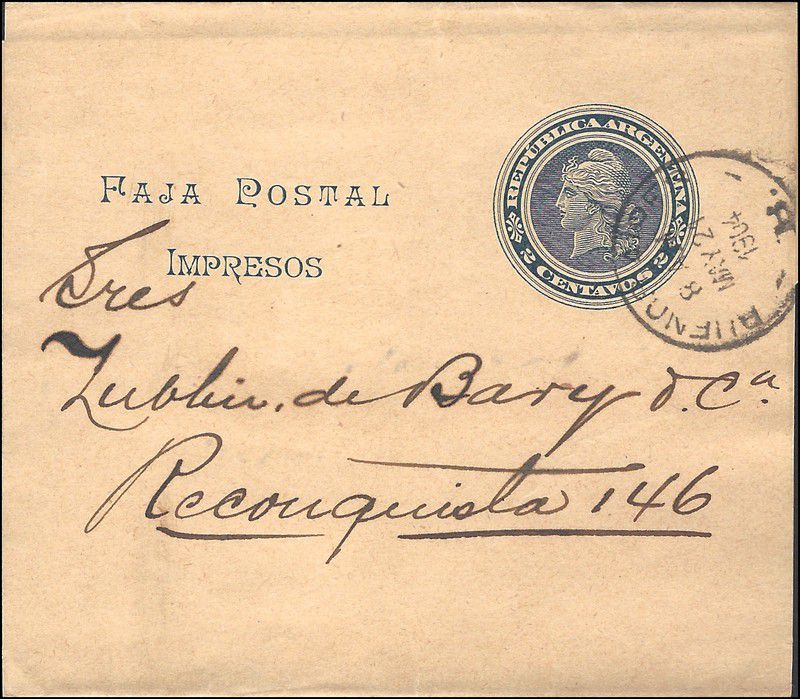 FAJA POSTAL
IMPRESOS
REPÚBLICA ARGENTINA
2 CENTAVOS 2
BUENOS
8
MAY 2
1904
Sres
de Bary & Ca
Reconquista 146